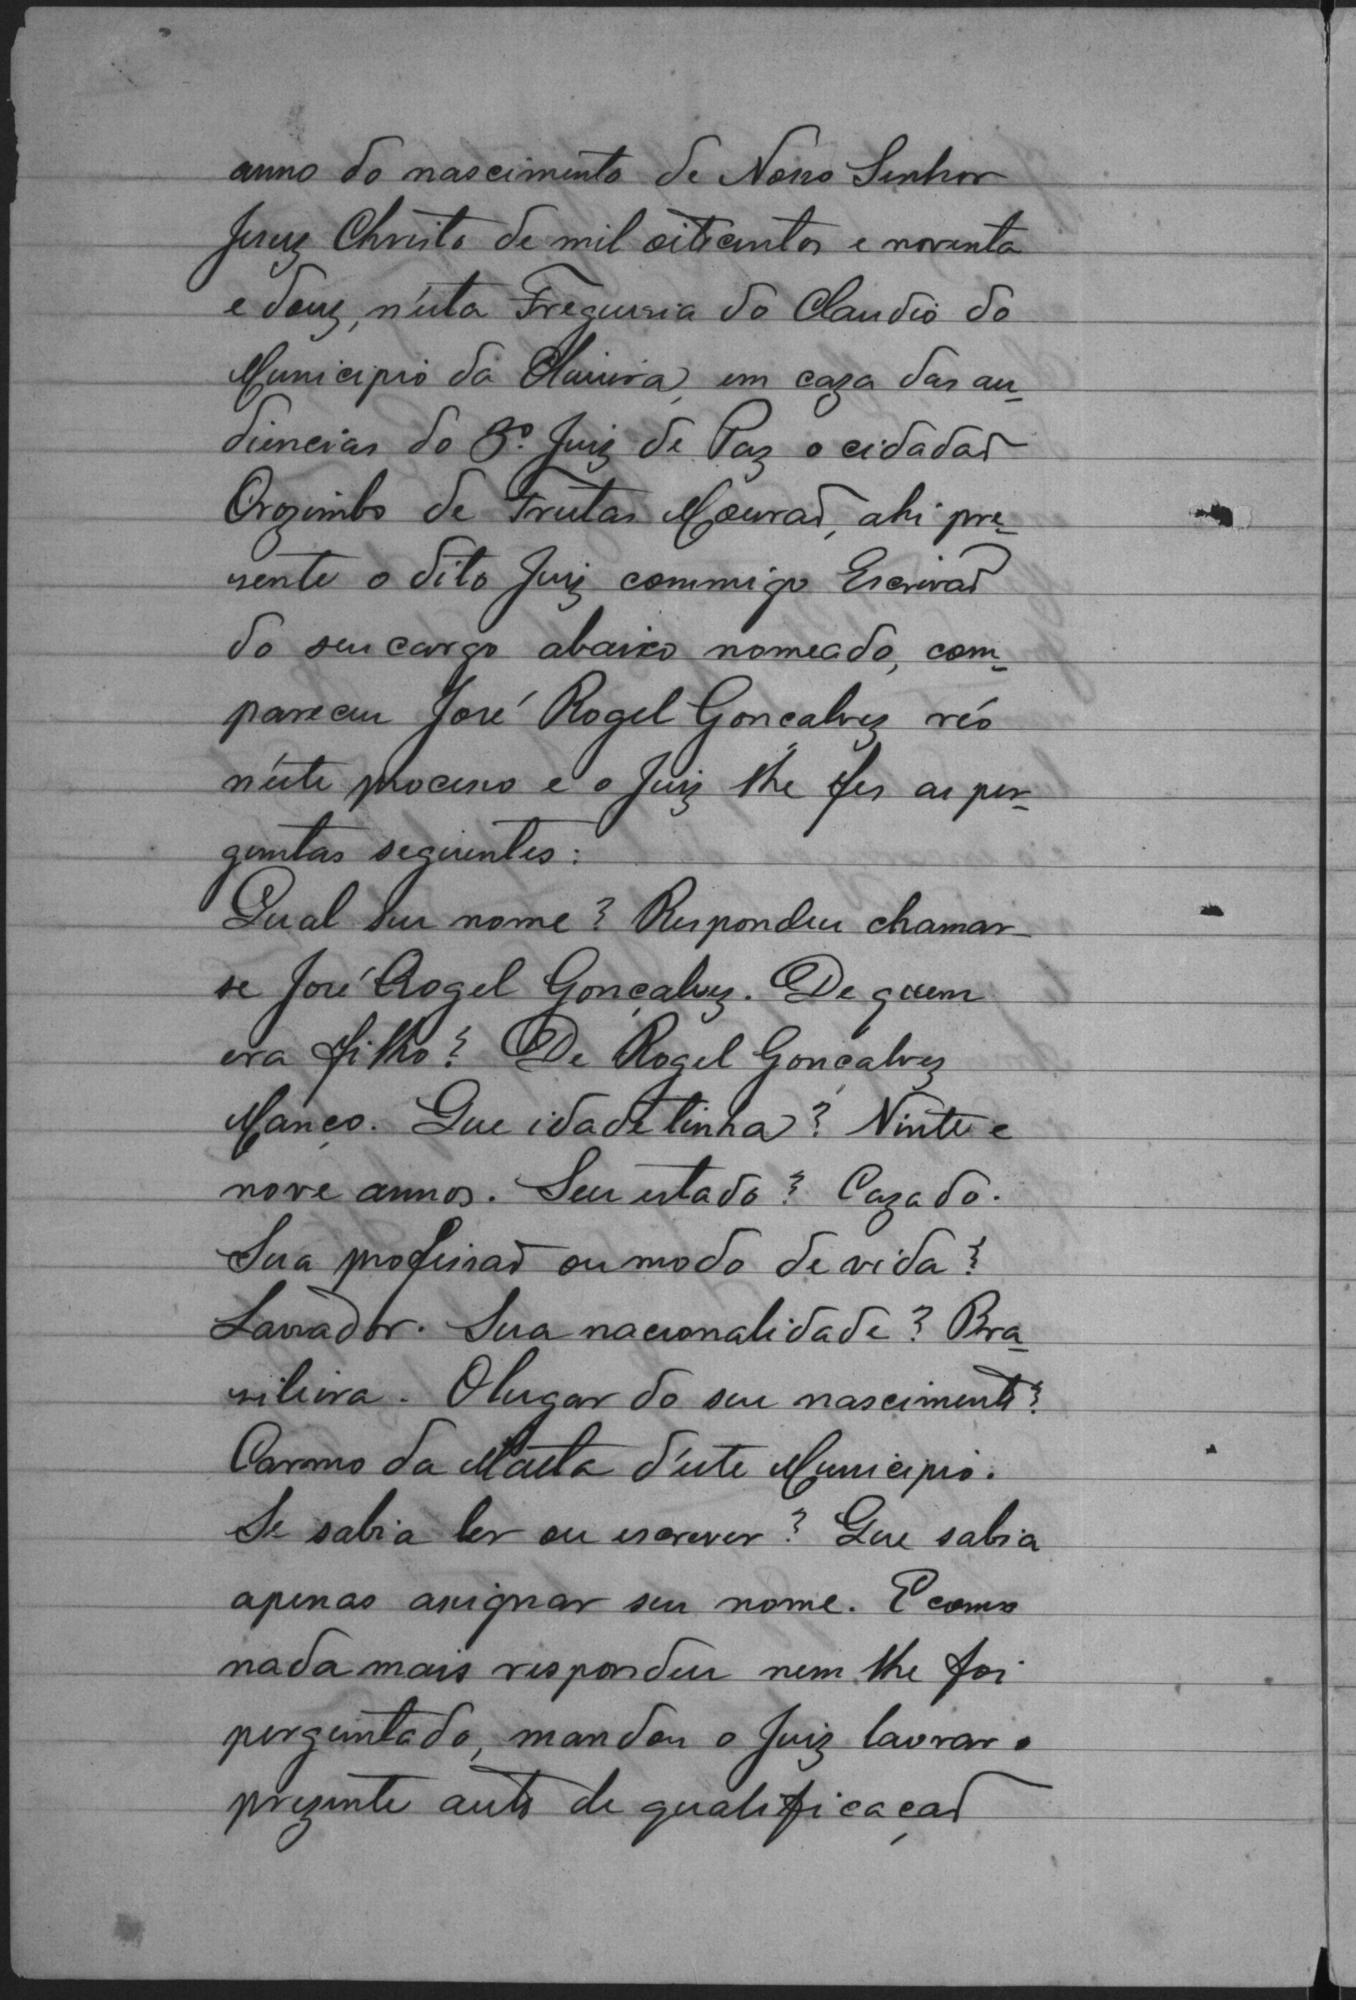 anno do nascimento de Nosso Senhor
Jesus Christo de mil oitocentos e noventa
e dous, n'esta Freguesia do Claudio do
Municipio da Oliveira, em caza das au-
diencias do 3º. Juiz de Paz o cidadaõ
Orozimbo de Freitas Mouraõ, ahi pre-
sente o dito Juiz commigo Escrivaõ
do seu cargo abaixo nomeado, com-
pareceu José Rogel Gonçalvez réo
n'este processo e o Juiz lhe fes as per-
guntas seguintes:
Qual seu nome? Respondeu chamar-
se José Rogel Gonçalvez. De quem
era filho? De Rogel Gonçalvez
Manço. Que idade tinha? Vinte e
nove annos. Seu estado? Cazado.
Sua profissaõ ou modo de vida?
Lavrador. Sua nacionalidade? Bra-
sileira. O lugar do seu nascimento?
Carmo da Matta d'este Municipio.
Se sabia ler ou escrever? Que sabia
apenas assignar seu nome. E como
nada mais respondeu nem lhe foi
perguntado, mandou o Juiz lavrar o
prezente auto de qualificaçaõ